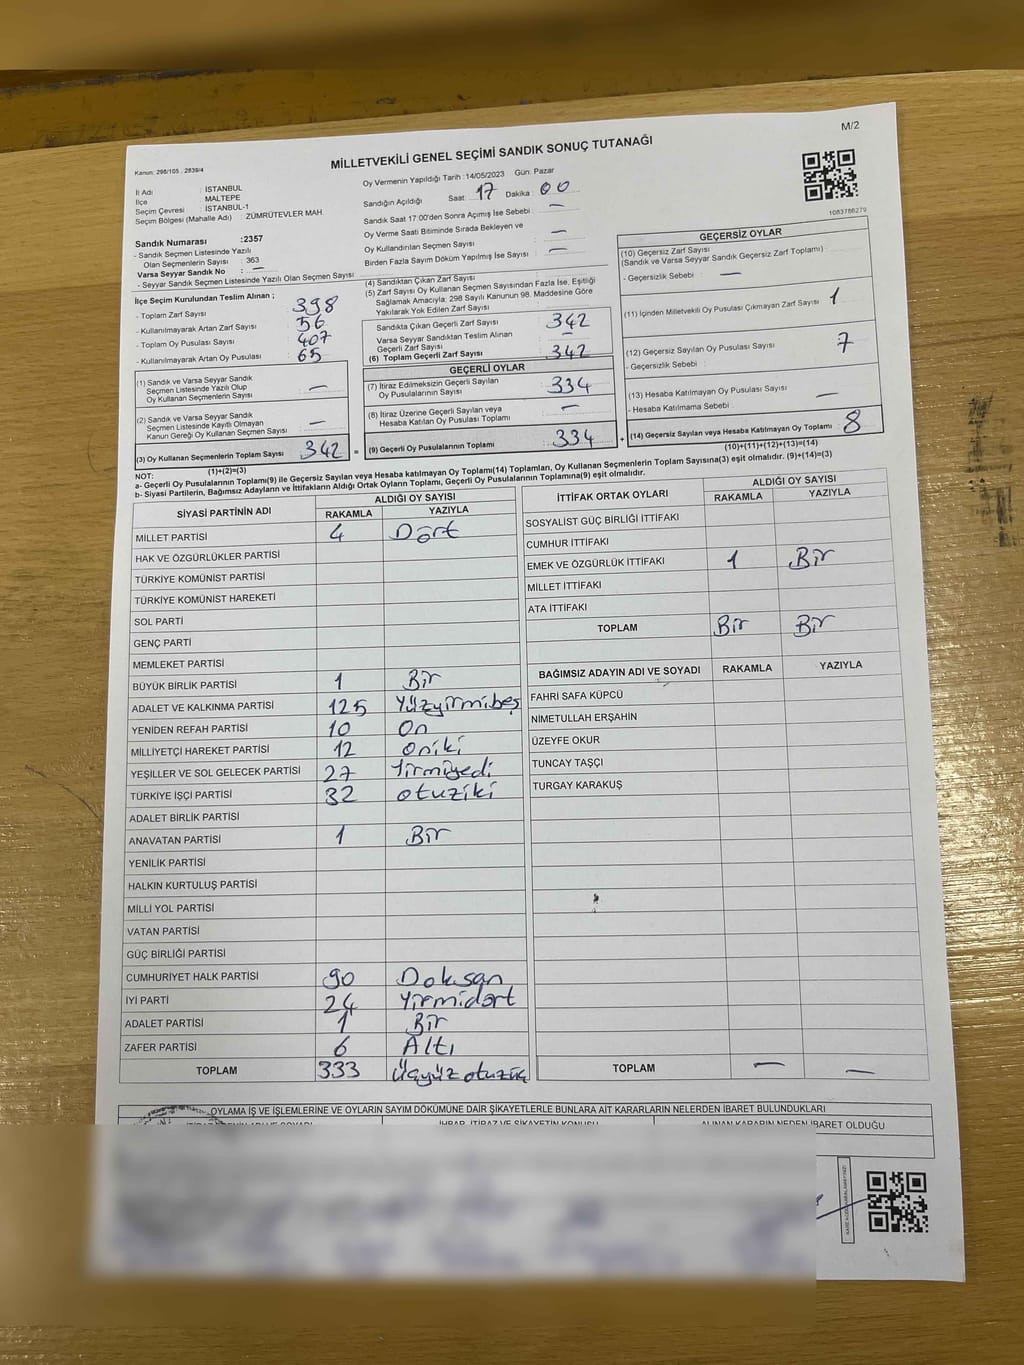 M/2
Kanun: 298/105 , 2839/4
MİLLETVEKİLİ GENEL SEÇİMİ SANDIK SONUÇ TUTANAĞI
İl Adı : İSTANBUL
İlçe MALTEPE
Seçim Çevresi : İSTANBUL-1
Seçim Bölgesi (Mahalle Adı) : ZÜMRÜTEVLER MAH.
Oy Vermenin Yapıldığı Tarih :14/05/2023 Gün: Pazar
Sandığın Açıldığı Saat : 17 Dakika : 00
Sandık Saat 17:00'den Sonra Açmış İse Sebebi : —
Oy Verme Saati Bitiminde Sırada Bekleyen ve
Oy Kullandırılan Seçmen Sayısı : —
Birden Fazla Sayım Döküm Yapılmış İse Sayısı : —
1083786279
Sandık Numarası :2357
- Sandık Seçmen Listesinde Yazılı
Olan Seçmenlerin Sayısı : 363
Varsa Seyyar Sandık No : —
- Seyyar Sandık Seçmen Listesinde Yazılı Olan Seçmen Sayısı
İlçe Seçim Kurulundan Teslim Alınan ;
- Toplam Zarf Sayısı : 398
- Kullanılmayarak Artan Zarf Sayısı : 56
- Toplam Oy Pusulası Sayısı : 407
- Kullanılmayarak Artan Oy Pusulası : 65
(1) Sandık ve Varsa Seyyar Sandık
Seçmen Listesinde Yazılı Olup
Oy Kullanan Seçmenlerin Sayısı : —
(2) Sandık ve Varsa Seyyar Sandık
Seçmen Listesinde Kayıtlı Olmayan
Kanun Gereği Oy Kullanan Seçmen Sayısı : —
(3) Oy Kullanan Seçmenlerin Toplam Sayısı : 342
(1)+(2)=(3)
(4) Sandıktan Çıkan Zarf Sayısı :
(5) Zarf Sayısı Oy Kullanan Seçmen Sayısından Fazla İse, Eşitliği
Sağlamak Amacıyla; 298 Sayılı Kanunun 98. Maddesine Göre
Yakılarak Yok Edilen Zarf Sayısı :
Sandıkta Çıkan Geçerli Zarf Sayısı : 342
Varsa Seyyar Sandıktan Teslim Alınan
Geçerli Zarf Sayısı : —
(6) Toplam Geçerli Zarf Sayısı : 342
GEÇERLİ OYLAR
(7) İtiraz Edilmeksizin Geçerli Sayılan
Oy Pusulalarının Sayısı : 334
(8) İtiraz Üzerine Geçerli Sayılan veya
Hesaba Katılan Oy Pusulası Toplamı : —
= (9) Geçerli Oy Pusulalarının Toplamı 334 +
GEÇERSİZ OYLAR
(10) Geçersiz Zarf Sayısı
(Sandık ve Varsa Seyyar Sandık Geçersiz Zarf Toplamı)
- Geçersizlik Sebebi : —
(11) İçinden Milletvekili Oy Pusulası Çıkmayan Zarf Sayısı : 1
(12) Geçersiz Sayılan Oy Pusulası Sayısı : 7
- Geçersizlik Sebebi :
(13) Hesaba Katılmayan Oy Pusulası Sayısı : —
- Hesaba Katılmama Sebebi :
(14) Geçersiz Sayılan veya Hesaba Katılmayan Oy Toplamı : 8
(10)+(11)+(12)+(13)=(14)
NOT:
a- Geçerli Oy Pusulalarının Toplamı(9) ile Geçersiz Sayılan veya Hesaba katılmayan Oy Toplamı(14) Toplamları, Oy Kullanan Seçmenlerin Toplam Sayısına(3) eşit olmalıdır. (9)+(14)=(3)
b- Siyasi Partilerin, Bağımsız Adayların ve İttifakların Aldığı Ortak Oyların Toplamı, Geçerli Oy Pusulalarının Toplamına(9) eşit olmalıdır.
SİYASİ PARTİNİN ADI ALDIĞI OY SAYISI
RAKAMLA YAZIYLA
MİLLET PARTİSİ 4 Dört
HAK VE ÖZGÜRLÜKLER PARTİSİ
TÜRKİYE KOMÜNİST PARTİSİ
TÜRKİYE KOMÜNİST HAREKETİ
SOL PARTİ
GENÇ PARTİ
MEMLEKET PARTİSİ
BÜYÜK BİRLİK PARTİSİ 1 Bir
ADALET VE KALKINMA PARTİSİ 125 Yüzyirmibeş
YENİDEN REFAH PARTİSİ 10 On
MİLLİYETÇİ HAREKET PARTİSİ 12 oniki
YEŞİLLER VE SOL GELECEK PARTİSİ 27 Yirmiyedi
TÜRKİYE İŞÇİ PARTİSİ 32 otuziki
ADALET BİRLİK PARTİSİ
ANAVATAN PARTİSİ 1 Bir
YENİLİK PARTİSİ
HALKIN KURTULUŞ PARTİSİ
MİLLİ YOL PARTİSİ
VATAN PARTİSİ
GÜÇ BİRLİĞİ PARTİSİ
CUMHURİYET HALK PARTİSİ 90 Doksan
İYİ PARTİ 24 Yirmidört
ADALET PARTİSİ 1 Bir
ZAFER PARTİSİ 6 Altı
TOPLAM 333 Üçyüzotuzüç
İTTİFAK ORTAK OYLARI ALDIĞI OY SAYISI
RAKAMLA YAZIYLA
SOSYALİST GÜÇ BİRLİĞİ İTTİFAKI
CUMHUR İTTİFAKI
EMEK VE ÖZGÜRLÜK İTTİFAKI 1 Bir
MİLLET İTTİFAKI
ATA İTTİFAKI
TOPLAM Bir Bir
BAĞIMSIZ ADAYIN ADI VE SOYADI RAKAMLA YAZIYLA
FAHRİ SAFA KÜPCÜ
NİMETULLAH ERŞAHİN
ÜZEYFE OKUR
TUNCAY TAŞÇI
TURGAY KARAKUŞ
TOPLAM — —
OYLAMA İŞ VE İŞLEMLERİNE VE OYLARIN SAYIM DÖKÜMÜNE DAİR ŞİKAYETLERLE BUNLARA AİT KARARLARIN NELERDEN İBARET BULUNDUKLARI
İHBAR, İTİRAZ VE ŞİKAYETİN KONUSU
ALINAN KARARIN NEDEN İBARET OLDUĞU